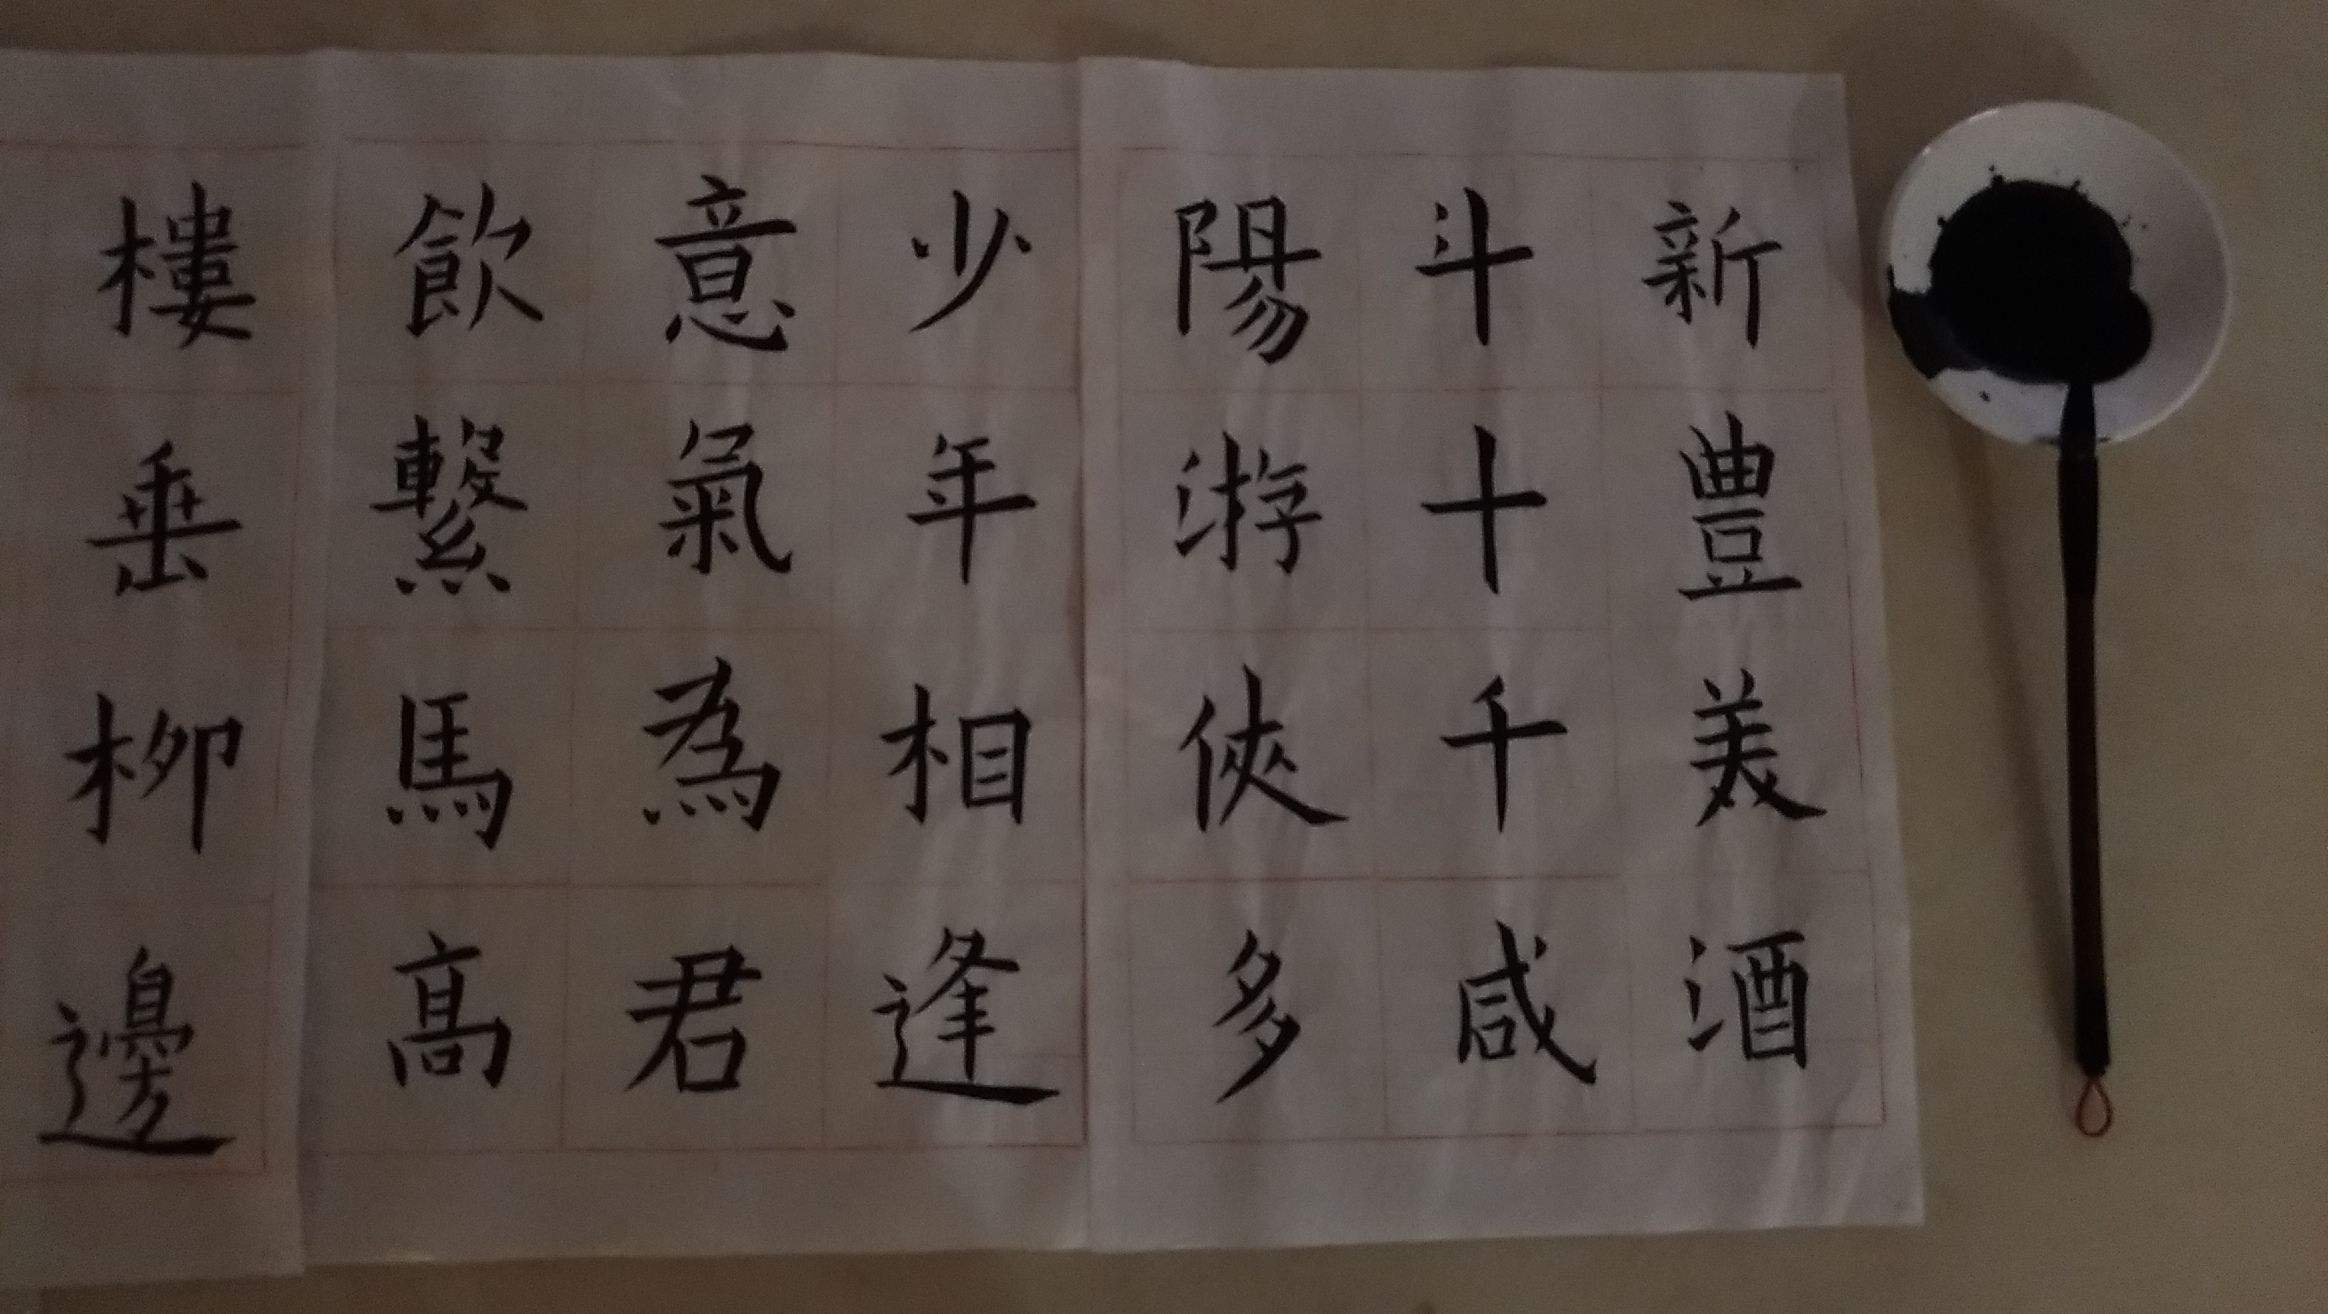 新豐美酒
斗十千咸
陽游俠多
少年相逢
意氣為君
飲繫馬高
樓垂柳邊